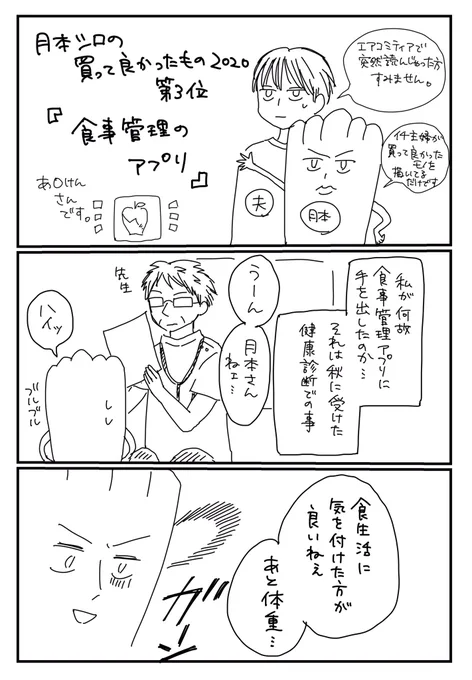 月本シロの
買って良かったもの2020
第3位
『食事管理の
アプリ』
あ〇けん
さん
です。
エアコミティアで
突然読んじゃった方
すみません。
イチ主婦が
買って良かった
モノを
描いてる
だけです
夫
月本
私が何故
食事管理アプリに
手を出したのか…
それは秋に受けた
健康診断での事
先生
うーん
月本さん
ねェ…
ハイッ
ブルブル
食生活に
気を付けた方が
良いねぇ
あと体重…
ガーン